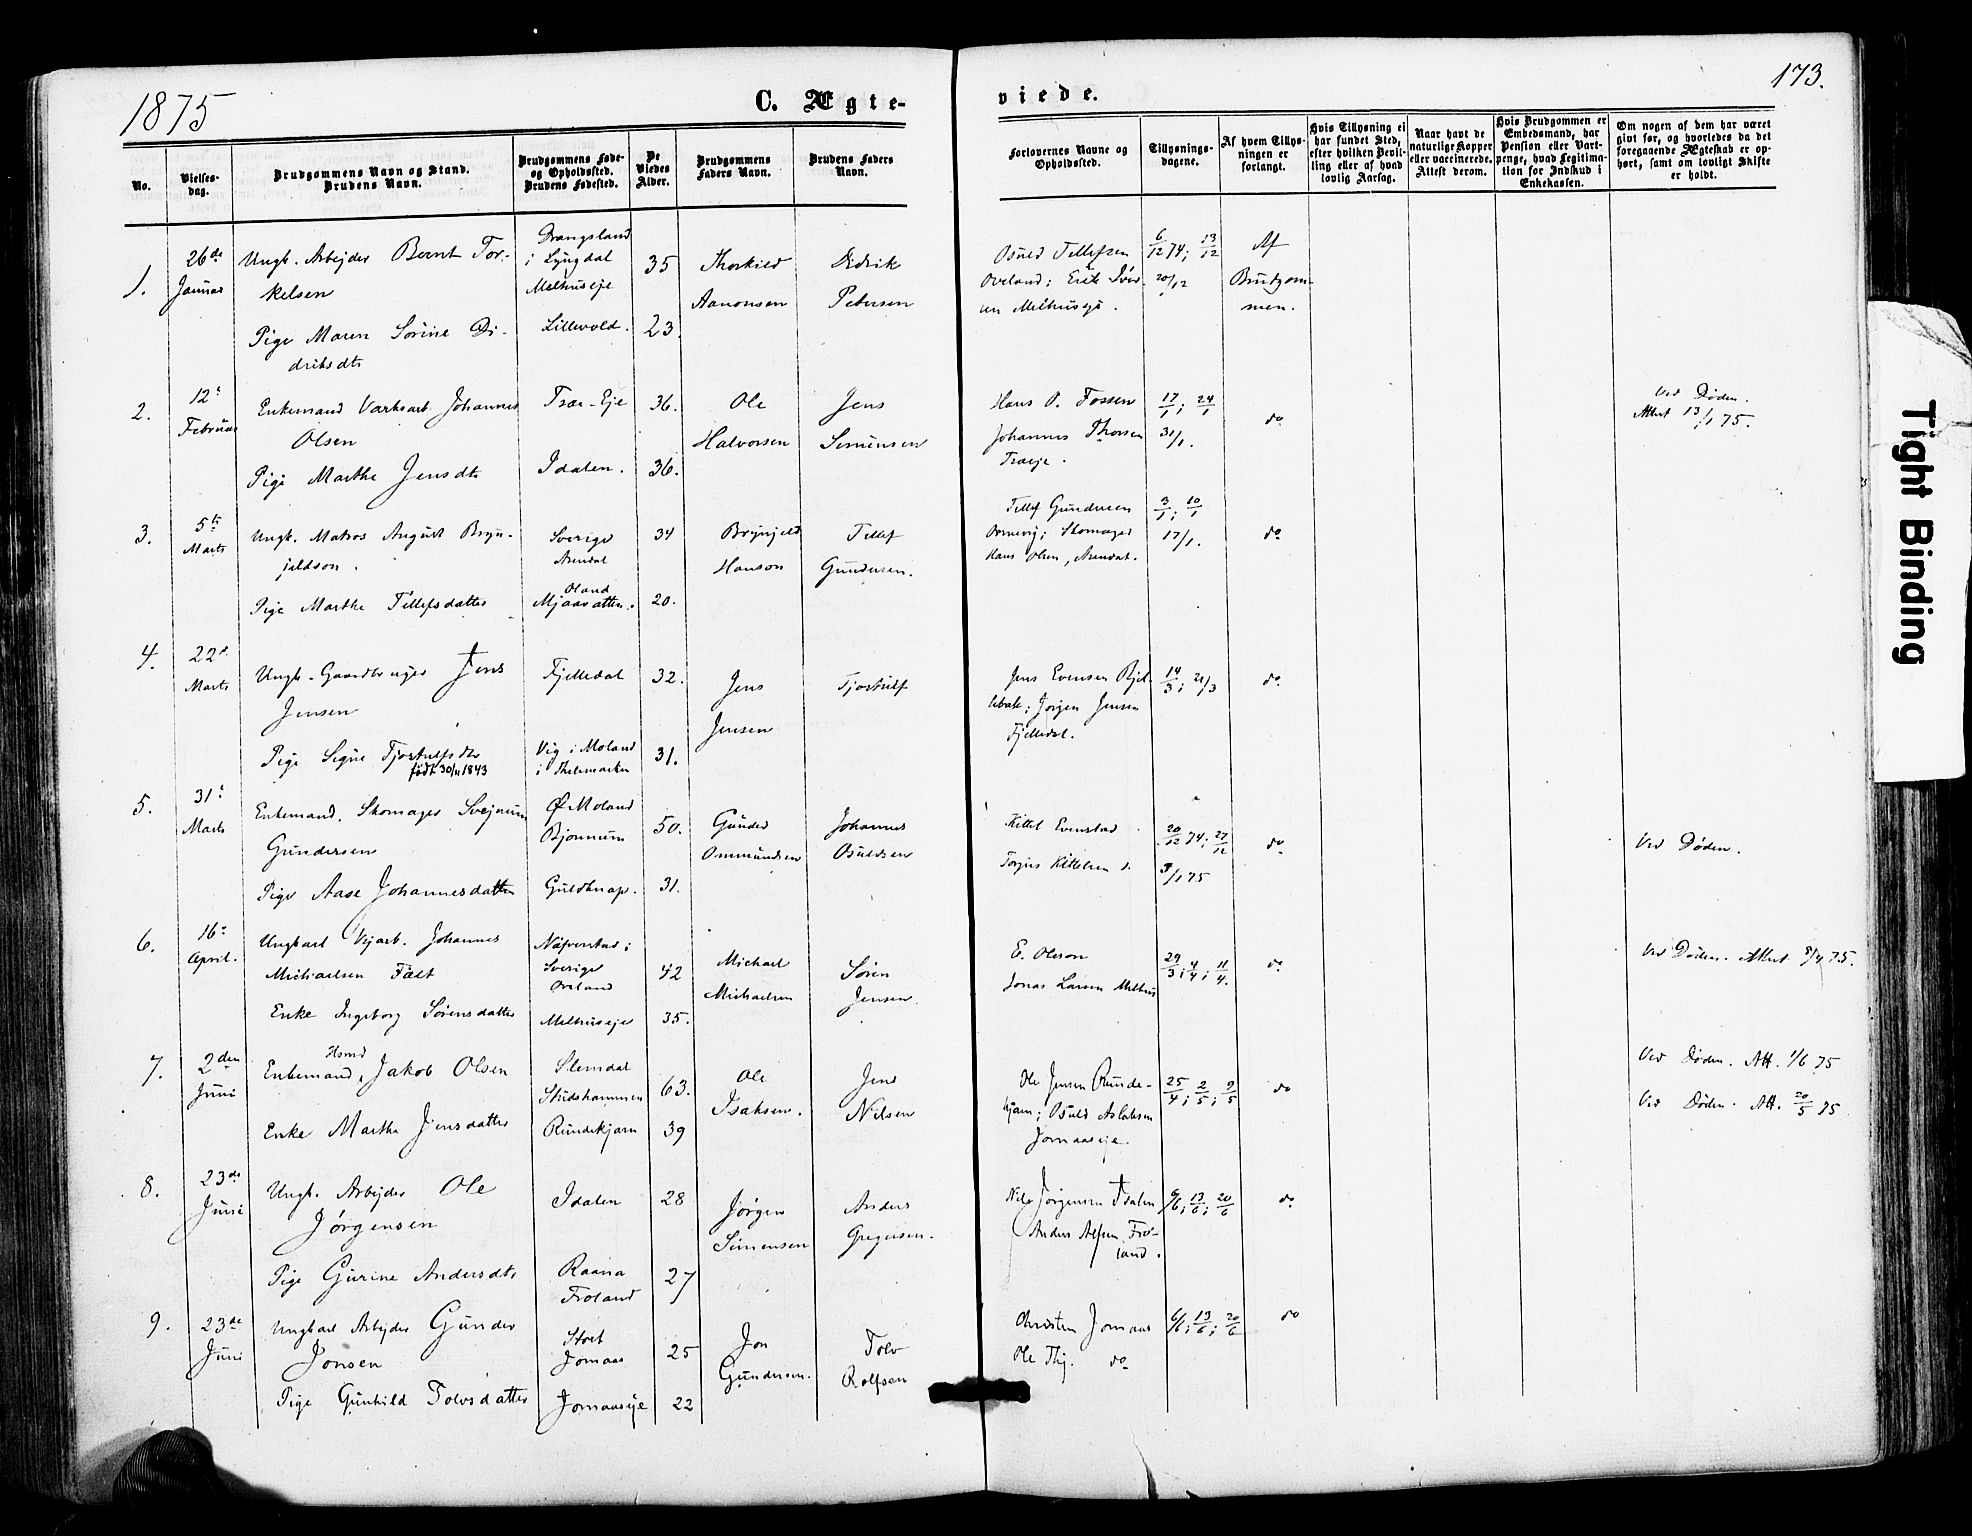 1875
C. Ægte-
viede.
173.
No.
Vielses-
dag.
Brudgommens Navn og Stand.
Brudens Navn.
Brudgommens Føde-
og Opholdssted.
Brudens Fødested.
De
Viedes
Alder.
Brudgommens
Faders Navn.
Brudens Faders
Navn.
Forlovernes Navne og
Opholdssted.
Tillysnings-
dagene.
Af hvem Tillys-
ningen er
forlangt.
Hvis Tillysning ei
har fundet Sted,
efter hvilken Bevil-
ling eller af hvad
lovlig Aarsag.
Naar havt de
naturlige Kopper
eller vaccinerede.
Attest derom.
Hvis Brudgommen er
Embedsmand, har
Pension eller Vart-
penge, hvad Legitima-
tion for Indskud i
Enkekassen.
Om nogen af dem har været
givt før, og hvorledes da det
foregaaende Ægteskab er op-
hørt, samt om lovligt Skifte
er holdt.
1.
26de
Januar
Ungk. Arbejder Bernt Tor-
kelsen
Pige Maren Sørine Di-
driksdtr
Drangsland
i Lyngdal
Melhuseje
Lillevold.
35
23
Thorkild
Aanonsen
Didrik
Petersen
Osuld Tellefsen
Oveland; Erik Iver-
sen Melhuseje.
6/12 74; 13/12
20/12
Af
Brudgom-
men.
2.
12te
Februar
Enkemand Værksarb. Johannes
Olsen
Pige Marthe Jensdtr
Træ-Eje
Idalen.
36.
36.
Ole
Halvorsen
Jens
Simensen
Hans P. Fossen
Johannes Thorsen
Træeje.
17/1; 24/1
31/1.
do
Ved Døden.
Attest 13/1 75.
3.
5te
Marts
Ungk. Matros August Bryn-
jeldson.
Pige Marthe Tellefsdatter
Sverige
Arendal
Øland
Mjaavatten.
34
20.
Brynjeld
Hanson
Tellef
Gundersen.
Tellef Gundersen
; Skomager
Hans Olsen, Arendal.
3/1; 10/1
17/1.
do
4.
22de
Marts
Ungk. Gaardbruger Jens
Jensen
Pige Signe Tjostulfsdtr
født 30/11 1843
Fjelledal
Vig i Moland
i Thelemarken
32.
31.
Jens
Jensen
Tjostulf
Jens Evensen Bjel-
; Jørgen Jensen
Fjelledal.
14/3; 21/3
do
5.
31te
Marts
Enkemand. Skomager Svejnum
Gundersen
Pige Aase Johannesdatter
Ø. Moland
Bjonnum
Guldknap.
50.
31.
Gunder
Ommundsen
Johannes
Osuldsen
Kittel Evenstad
Torjus Kittelsen
20/12 74; 27/12
3/1 75
do
Ved Døden.
6.
16de
April.
Ungkarl Vejarb. Johannes
Michaelsen Fält
Enke Ingeborg Sørensdatter
Näfverstad i
Sverige
Oveland
Melhuseje
42
35.
Michael
Michaelsen
Søren
Jensen.
E. Olsson
Jonas Larsen Melhus
29/3; 4/4; 11/4.
do
Ved Døden. Attest 8/4 75.
7.
2den
Juni
Husmd
Enkemand, Jakob Olsen
Enke Marthe Jensdatter
Slemdal
Stidshammen
Rundekjærn
63.
39
Ole
Isaksen.
Jens
Nilsen
Ole Jensen Runde-
kjærn; Osuld Aslaksen
Jomaaseje.
25/4; 2/5; 9/5
do
Ved Døden. Att. 1/6 75
Ved Døden. Att. 20/5 75
8.
23de
Juni
Ungk. Arbejder Ole
Jørgensen
Pige Gurine Andersdtr
Idalen
Raana
Froland
28
27
Jørgen
Simensen
Anders
Gregersen.
Nils Jørgensen Idalen
Anders Alfsen Fro-
land.
6/6; 13/6; 20/6
do
9.
23de
Juni
Ungkarl Arbejder Gunder
Jonsen
Pige Gunhild Tolvsdatter
Stort
Jomaas
Jomaaseje
25
22
Jon
Gundersen.
Tolv
Rolfsen
Christen Jomaas
Ole Thj. do
6/6; 13/6; 20/6
do
Tight Binding